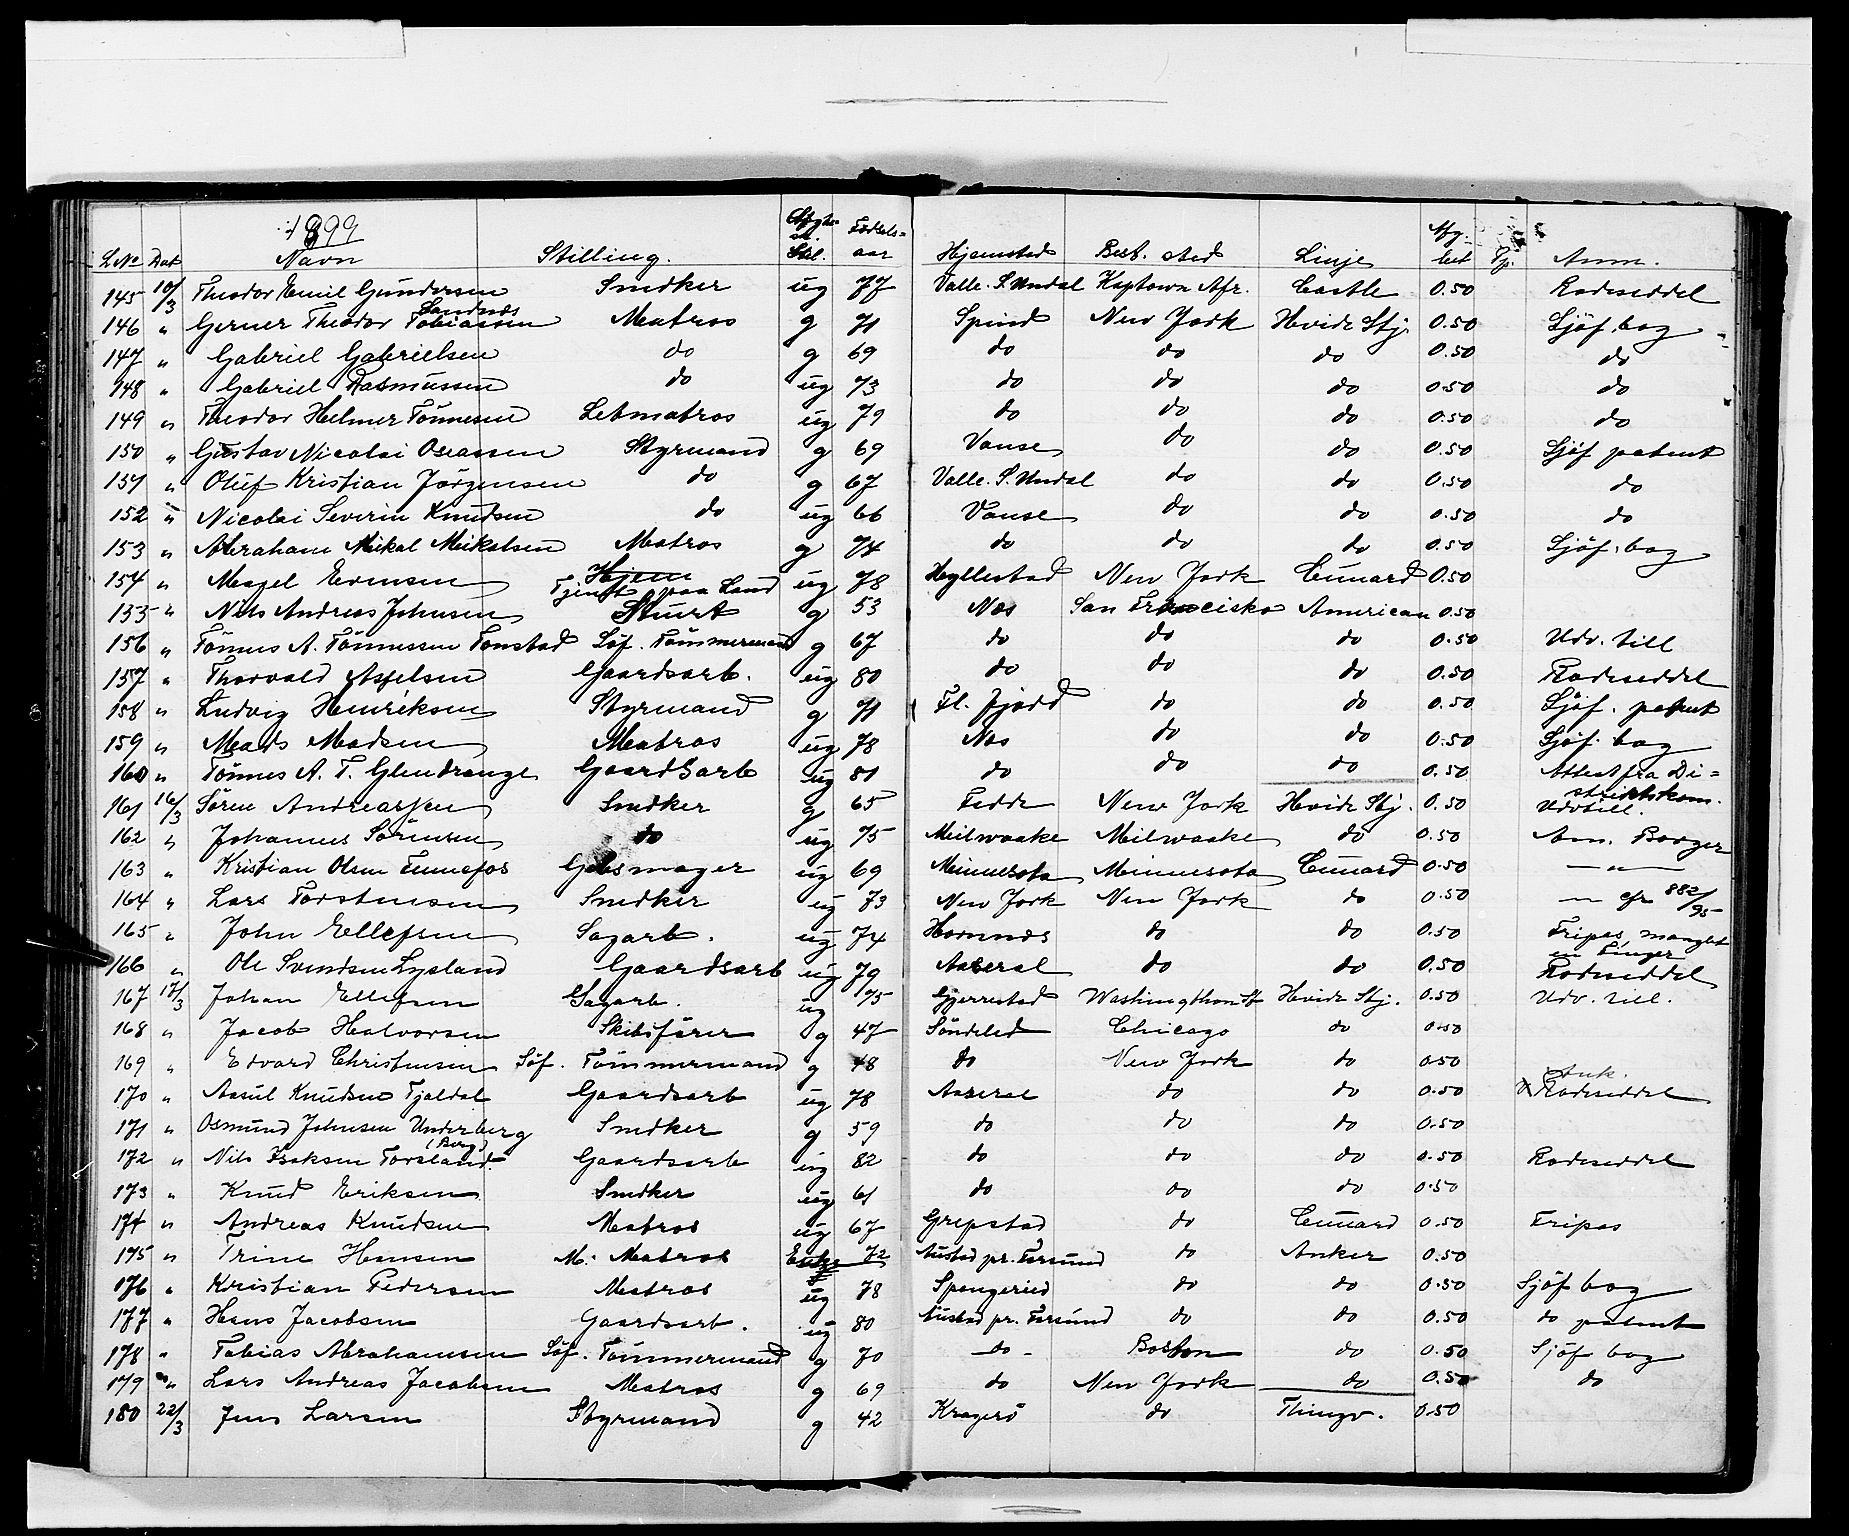 1899
L.No Dat Navn Stilling. Ægte- sk. Stil. Födsels- aar Hjemsted Best. sted Linje Afg. bet Gp. Anm.
145 10/3 Theodor Emil Gundersen Snedker ug 77 Valle. S. Undal Kaptown Afr. Castle 0.50 Rodeseddel
Sandnes
146 " Gerner Theodor Tobiassen Matros g 71 Spind New York Hvide Stj. 0.50 Sjöf. bog
147 " Gabriel Gabrielsen do g 69 do do do 0.50 do
148 " Gabriel Rasmussen do ug 73 do do do 0.50 do
149 " Theodor Helmer Tönnesen Letmatros ug 79 do do do 0.50 do
150 " Gustav Nicolai Oseassen Styrmand g 69 Vanse do do 0.50 Sjöf patent
151 " Oluf Kristian Jörgensen do g 67 Valle. S. Undal do do 0.50 do
152 " Nicolai Severin Knudsen do ug 66 Vanse do do 0.50 do
153 " Abraham Mikal Mikalsen Matros g 74 do do do 0.50 Sjöf. bog
154 " Evensen Hjem Tjenst paa Land ug 78 Hyllestad New York Cunard 0.50
155 " Nils Andreas Johnsen Stuert g 53 Nes San Francisko American 0.50
156 " Tönnes A. Tönnessen Tonstad Söf. Tömmermand g 67 do do do 0.50 Udv. till
157 " Thorvald Axelsen Gaardsarb. ug 80 do do do 0.50 Rodeseddel
158 " Ludvig Henriksen Styrmand g 71 Fl. fjord do do 0.50 Sjöf. patent
159 " Mads Madsen Matros ug 78 Nes do do 0.50 Sjöf. bog
160 " Tönnes A. T. Glendrange Gaardsarb ug 81 do do do 0.50 Attest fra Di=
striktskom.
161 16/3 Sören Andreassen Snedker g 65 Fedde New York Hvide Stj. 0.50 Udvtill.
162 " Johannes Sörensen do ug 75 Milwaake Milwaake do 0.50 Am. Borger
163 " Kristian Olsen Tennefos Gibsmager ug 69 Minnesota Minnesota Cunard 0.50 — " —
164 " Lars Torstensen Snedker ug 73 New York New York do 0.50 — " cfr 882/95
165 " John Ellefsen Sagarb. ug 74 Hornnes do do 0.50 Fripas, mangler
en Finger
166 " Ole Svendsen Lysland Gaardsarb ug 79 Aaseral do do 0.50 Rodeseddel
167 17/3 Johan Ellefsen Sagarb. ug 75 Gjerrestad Washingthon St Hvide Stj. 0.50 Udv. till.
168 " Jacob Halvorsen Skibsförer g 47 Söndeled Chicago do 0.50
169 " Edvard Christensen Söf. Tömmermand g 48 do New York do 0.50
Ank.
170 " Aasul Knudsen Tjaldal Gaardsarb ug 78 Aaseral do do 0.50 Rodeseddel
171 " Osmund Johnsen Underberg Snedker g 59 do do do 0.50
(Berg)
172 " Nils Isaksen Torsland Gaardsarb ug 82 do do do 0.50 Rodeseddel
173 " Knud Eriksen Snedker ug 61 do do do 0.50
174 " Andreas Knudsen Matros ug 67 Grepstad do Cunard 0.50 Fripas
175 " Trine Hansen M. Matros Enke 72 Austad pr. Farsund do Anker 0.50
176 " Kristian Pedersen Matros ug 78 Spangereid do do 0.50 Sjöf bog
177 " Hans Jacobsen Gaardsarb. ug 80 Austad pr. Farsund do do 0.50 do patent
178 " Tobias Abrahamsen Söf. Tömmermand g 70 — do — Boston do 0.50 Sjöf bog
179 " Lars Andreas Jacobsen Matros g 69 do New York do 0.50 do
180 22/3 Jens Larsen Styrmand g 42 Kragerö do Thingv. 0.50